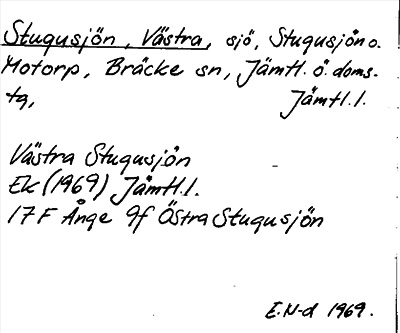 Stugusjön, Västra, sjö, Stugusjön o.
Motorp, Bräcke sn, Jämtl. ö. doms-
tg, Jämtl. l.
Västra Stugusjön
Ek (1969) Jämtl. l.
17 F Ånge 9f Östra Stugusjön
E. N-d 1969.